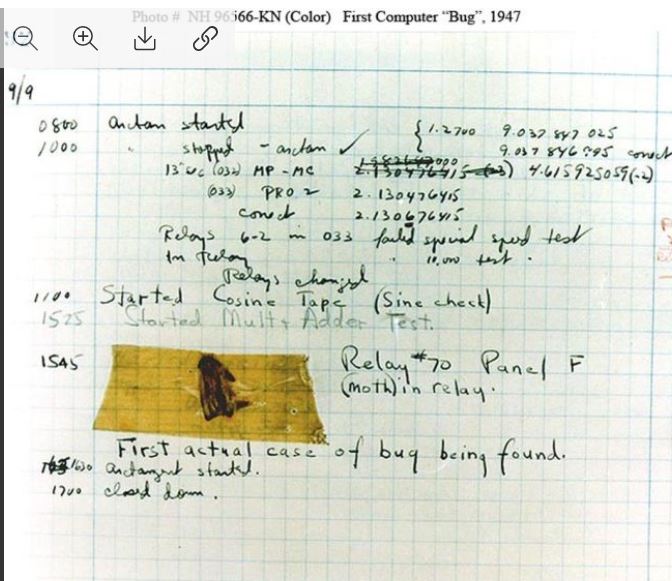 Photo # NH 96566-KN (Color) First Computer “Bug”, 1947
9/9
0800 antan started
1000 " stopped - antan ✓ { 1.2700 9.037 847 025
9.037 846 795 conect
13"uc (032) MP - MC 4.615925059(-2)
(033) PRO 2 2.130476415
conect 2.130676415
Relays 6-2 in 033 failed special speed test
In Relay " 10,000 test .
Relays changed
1100 Started Cosine Tape (Sine check)
1525 Started Mult+ Adder Test.
1545 Relay #70 Panel F
(moth) in relay.
First actual case of bug being found.
1630 antangent started.
1700 closed down .